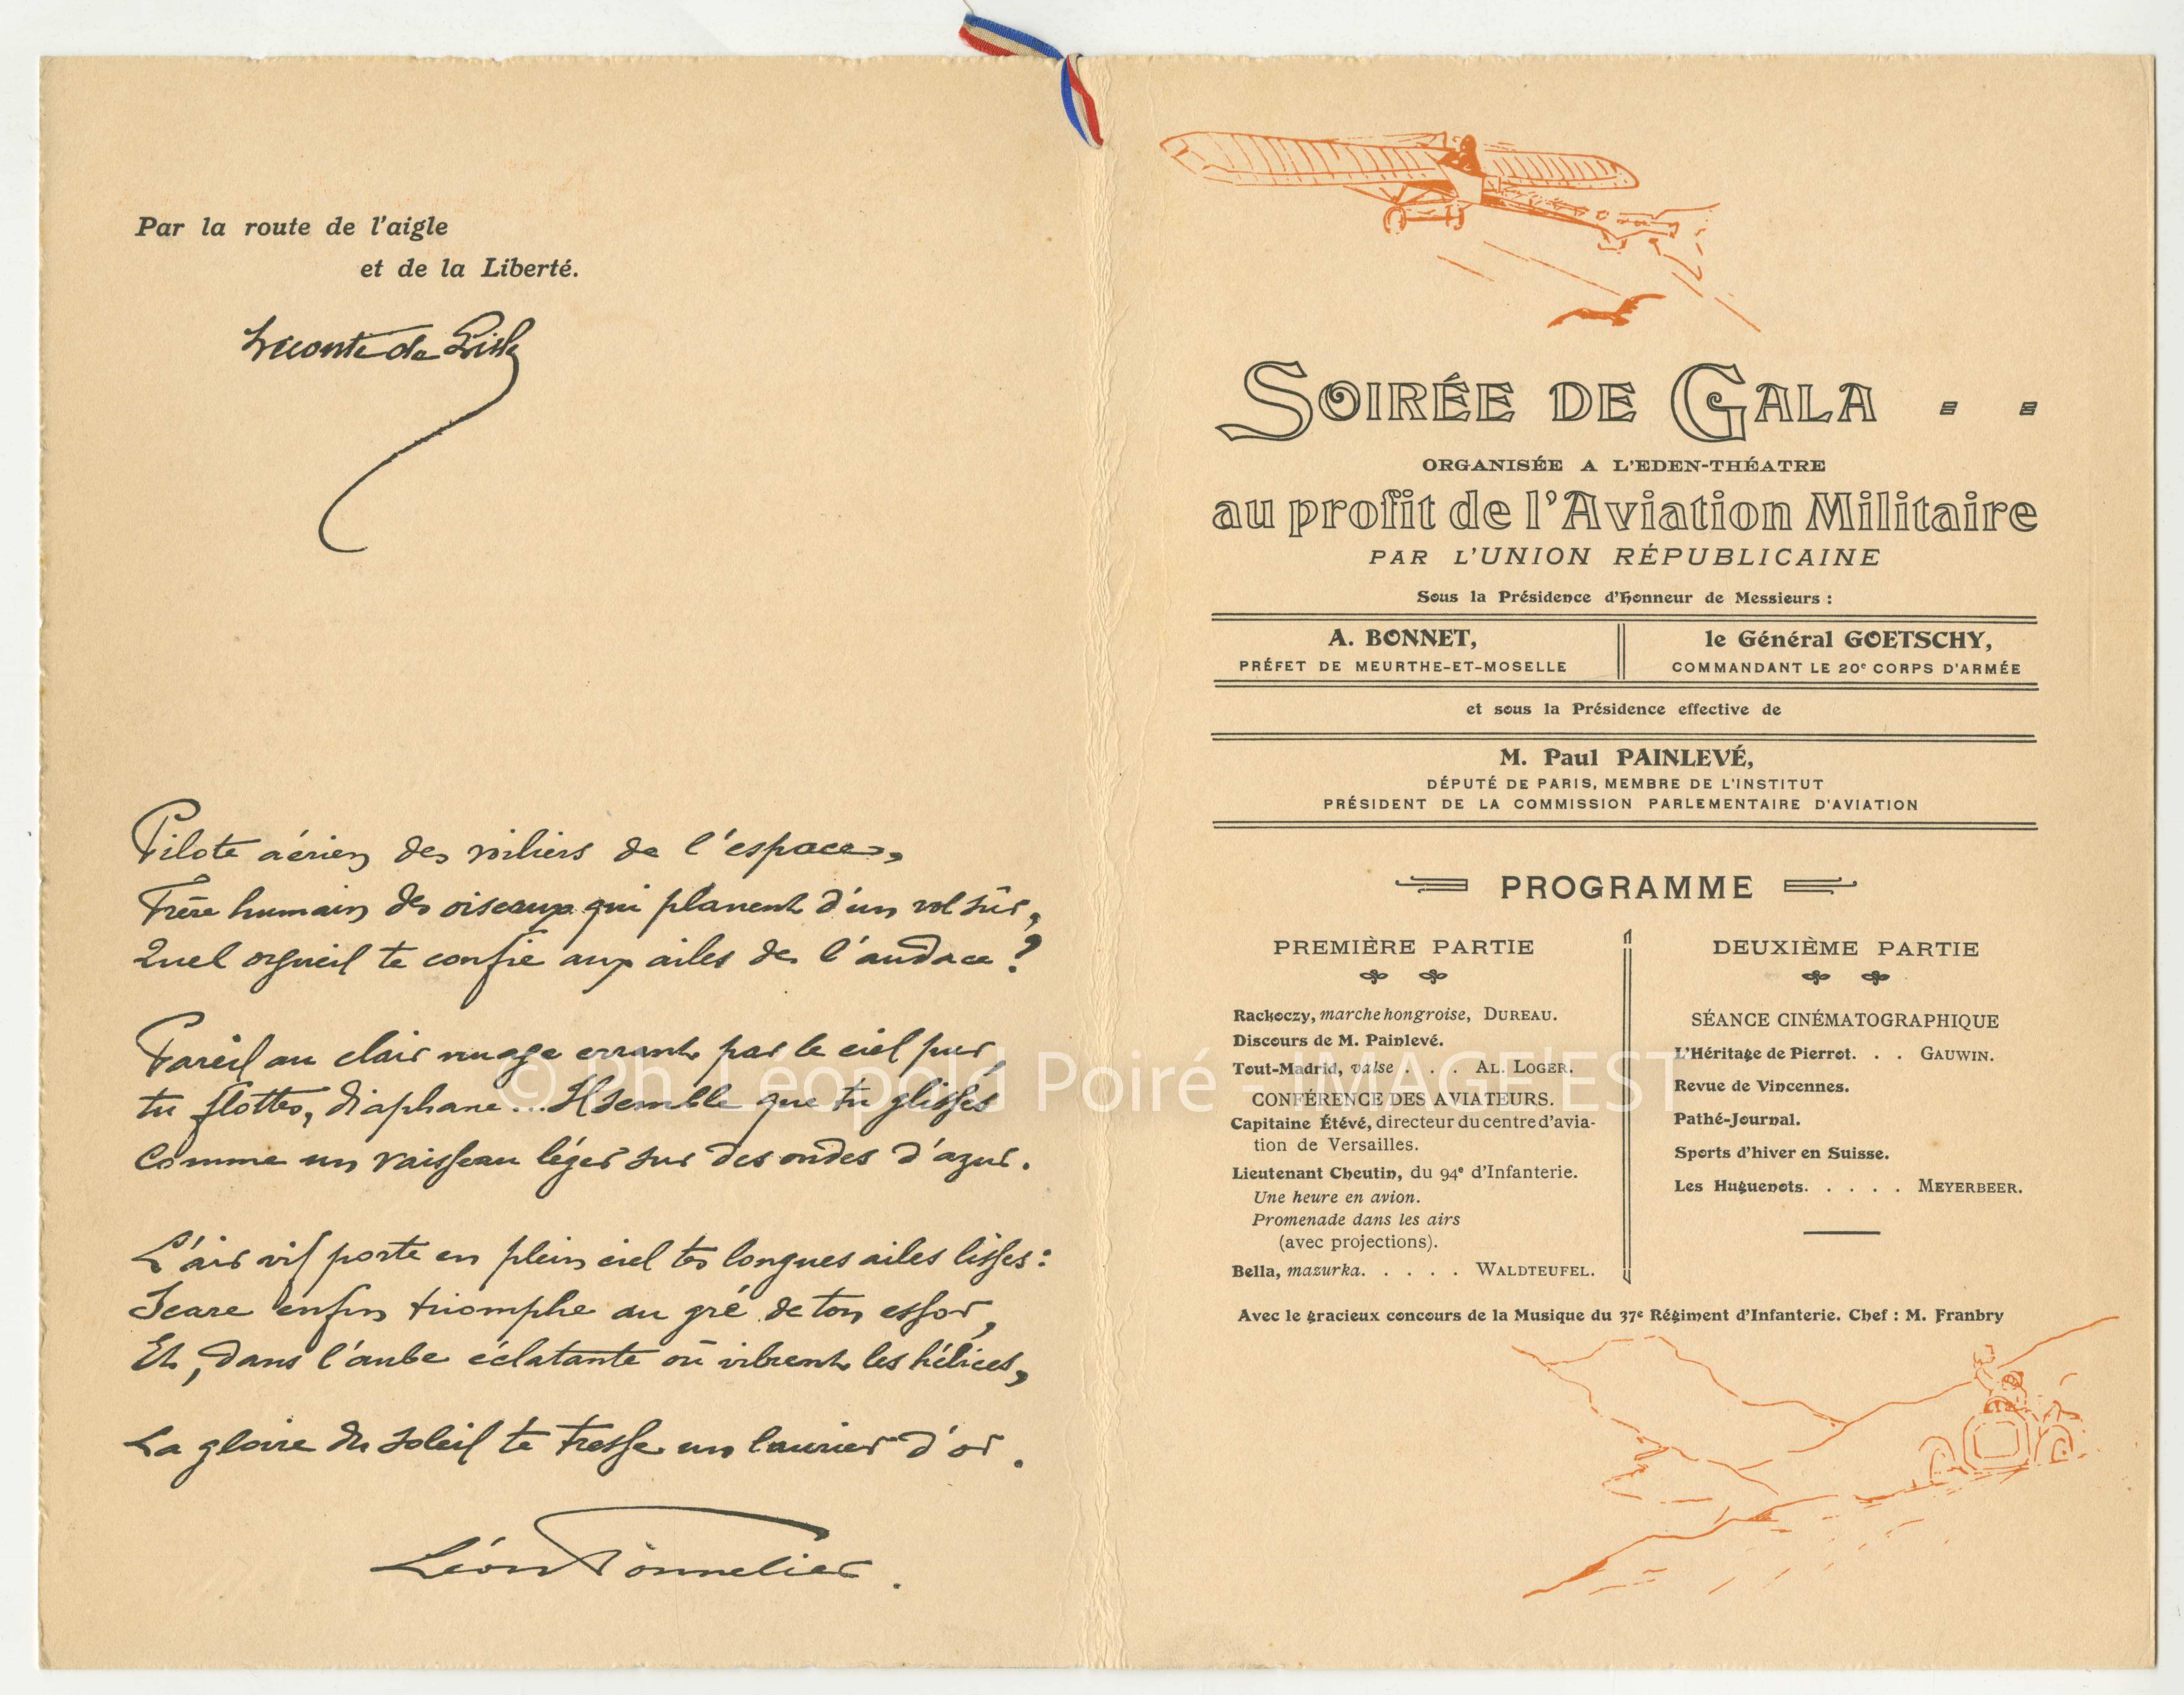 Par la route de l'aigle
et de la Liberté.
Leconte de Lisle
Pilote aérien des voiliers de l'espace,
Frère humain des oiseaux qui planent d'un vol sûr,
Quel orgueil te confie aux ailes de l'audace ?
Pareil au clair nuage errant par le ciel pur,
tu flottes, diaphane... Il semble que tu glisses
Comme un vaisseau léger sur des ondes d'azur.
L'air vif porte en plein ciel tes longues ailes lisses :
Icare enfin triomphe au gré de ton essor,
Et, dans l'aube éclatante où vibrent les hélices,
La gloire du soleil te tresse un laurier d'or.
Léon Tonnelier.
SOIRÉE DE GALA - -
ORGANISÉE A L'EDEN-THÉATRE
au profit de l'Aviation Militaire
PAR L'UNION RÉPUBLICAINE
Sous la Présidence d'Honneur de Messieurs :
A. BONNET,
PRÉFET DE MEURTHE-ET-MOSELLE
le Général GOETSCHY,
COMMANDANT LE 20e CORPS D'ARMÉE
et sous la Présidence effective de
M. Paul PAINLEVÉ,
DÉPUTÉ DE PARIS, MEMBRE DE L'INSTITUT
PRÉSIDENT DE LA COMMISSION PARLEMENTAIRE D'AVIATION
PROGRAMME
PREMIÈRE PARTIE
Rackoczy, marche hongroise, DUREAU.
Discours de M. Painlevé.
Tout-Madrid, valse . . . AL. LOGER.
CONFÉRENCE DES AVIATEURS.
Capitaine Étévé, directeur du centre d'avia-
tion de Versailles.
Lieutenant Cheutin, du 94e d'Infanterie.
Une heure en avion.
Promenade dans les airs
(avec projections).
Bella, mazurka. . . . . WALDTEUFEL.
DEUXIÈME PARTIE
SÉANCE CINÉMATOGRAPHIQUE
L'Héritage de Pierrot. . . GAUWIN.
Revue de Vincennes.
Pathé-Journal.
Sports d'hiver en Suisse.
Les Huguenots. . . . . MEYERBEER.
Avec le gracieux concours de la Musique du 37e Régiment d'Infanterie. Chef : M. Franbry
© Ph. Léopold Poiré - IMAGE'EST